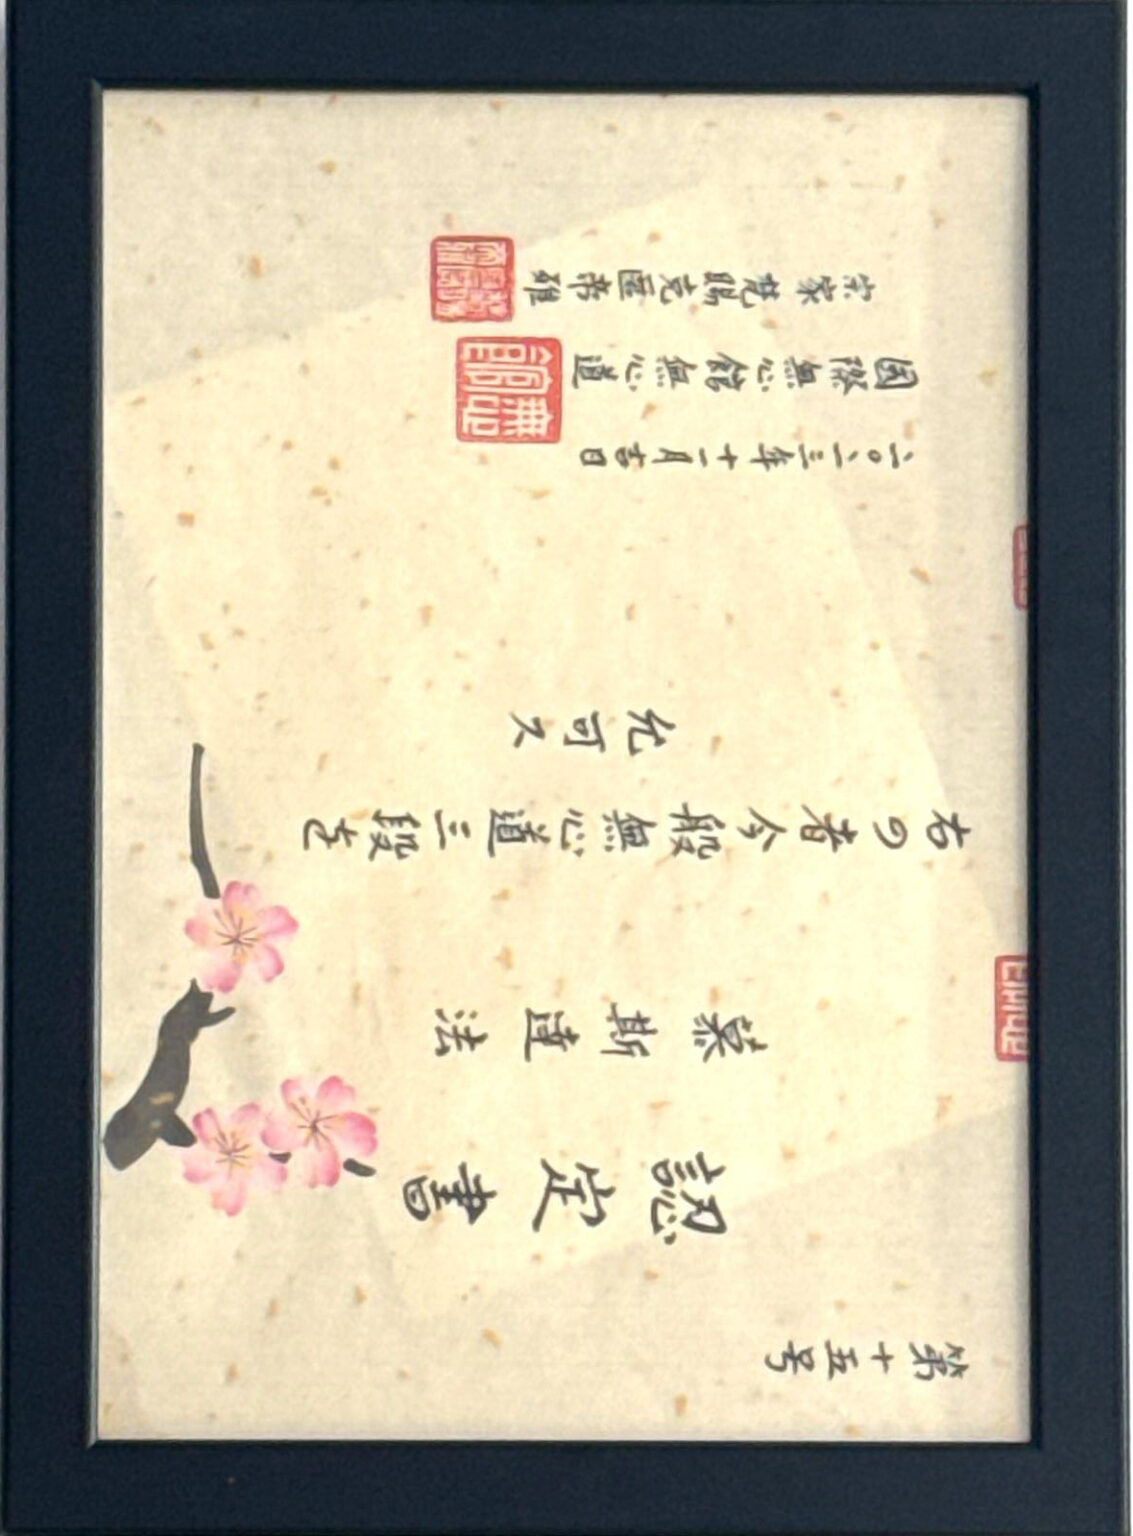 第十五号
認定書
慕斯達法
右の者今般無心道三段を
允可ス
二〇二三年十一月吉日
国際無心館無心道
宗家梵賜克匯帝雅
無心館